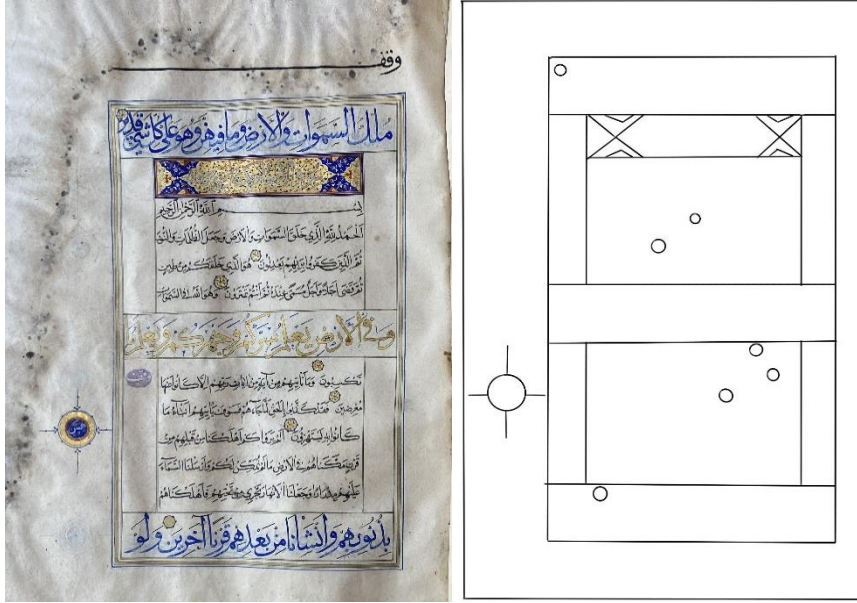 وقف
ملك السموات والارض وما فيهن وهو على كل شي قدير
بسم الله الرحمن الرحيم
الحمد لله الذي خلق السموات والارض وجعل الظلمات والنور
ثم الذين كفروا بربهم يعدلون هو الذي خلقكم من طين
ثم قضى اجلا واجل مسمى عنده ثم انتم تمترون وهو الله في السموات
وفي الارض يعلم سركم وجهركم ويعلم ما
تكسبون وما تاتيهم من آية من ايات ربهم الا كانوا عنها
معرضين فقد كذبوا بالحق لما جاءهم فسوف ياتيهم انباء ما
كانوا به يستهزؤن الم يروا كم اهلكنا من قبلهم من
قرن مكناهم في الارض ما لم نمكن لكم وارسلنا السماء
عليهم مدرارا وجعلنا الانهار تجري من تحتهم فاهلكناهم
بذنوبهم وانشانا من بعدهم قرنا آخرين ولو